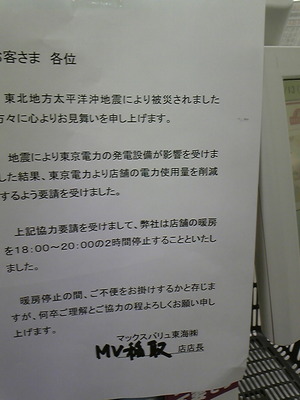 お客さま 各位
東北地方太平洋沖地震により被災されました
方々に心よりお見舞いを申し上げます。
地震により東京電力の発電設備が影響を受けま
した結果、東京電力より店舗の電力使用量を削減
するよう要請を受けました。
上記協力要請を受けまして、弊社は店舗の暖房
を18:00~20:00の2時間停止することといたし
ました。
暖房停止の間、ご不便をお掛けするかと存じま
すが、何卒ご理解とご協力の程よろしくお願い申し
上げます。
マックスバリュ東海㈱
MV稲取 店店長